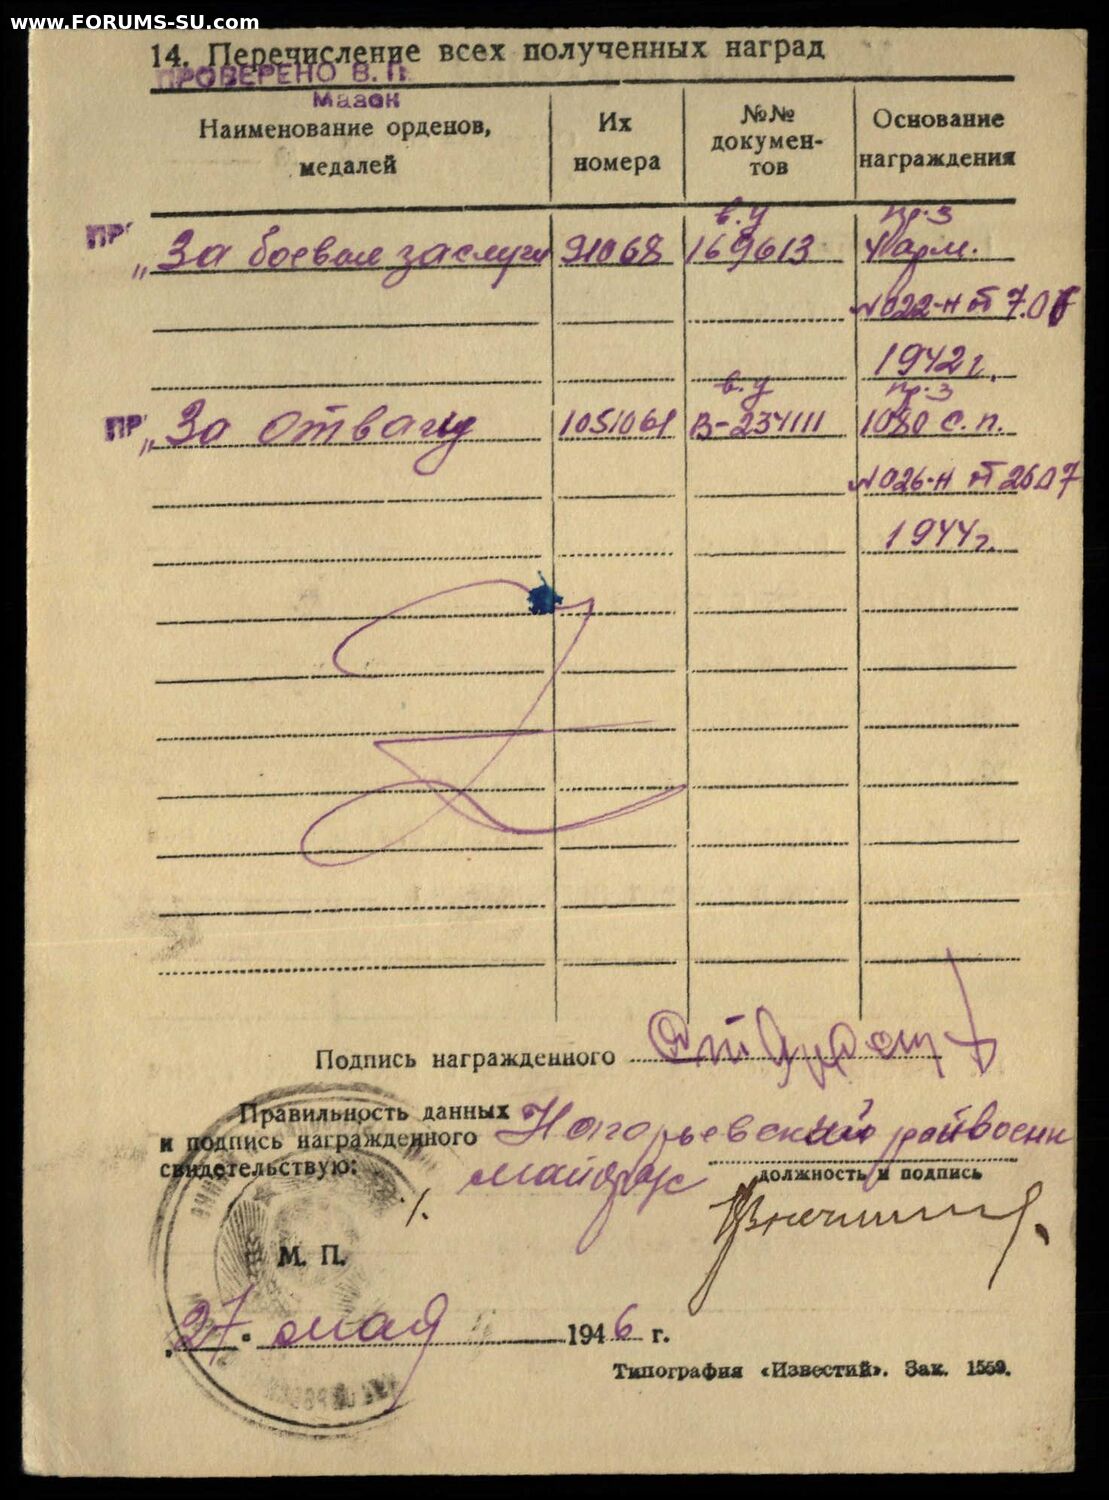 www.FORUMS-SU.com
14. Перечисление всех полученных наград
ПРОВЕРЕНО В. П.
Мазок
Наименование орденов, медалей
Их номера
№№ документов
Основание награждения
ПР
в.у пр.з
„За боевые заслуги 91068 169613 4 арм.
№022-н от 7.07
1942 г.
в.у пр.з
ПР
„За отвагу 1051061 В-234111 1080 с.п.
№026-н от 26.07
1944 г.
Подпись награжденного
Правильность данных
и подпись награжденного
свидетельствую:
Нагорьевский райвоенк
майор
должность и подпись
М. П.
„27" мая 1946 г.
Типография «Известий». Зак. 1559.